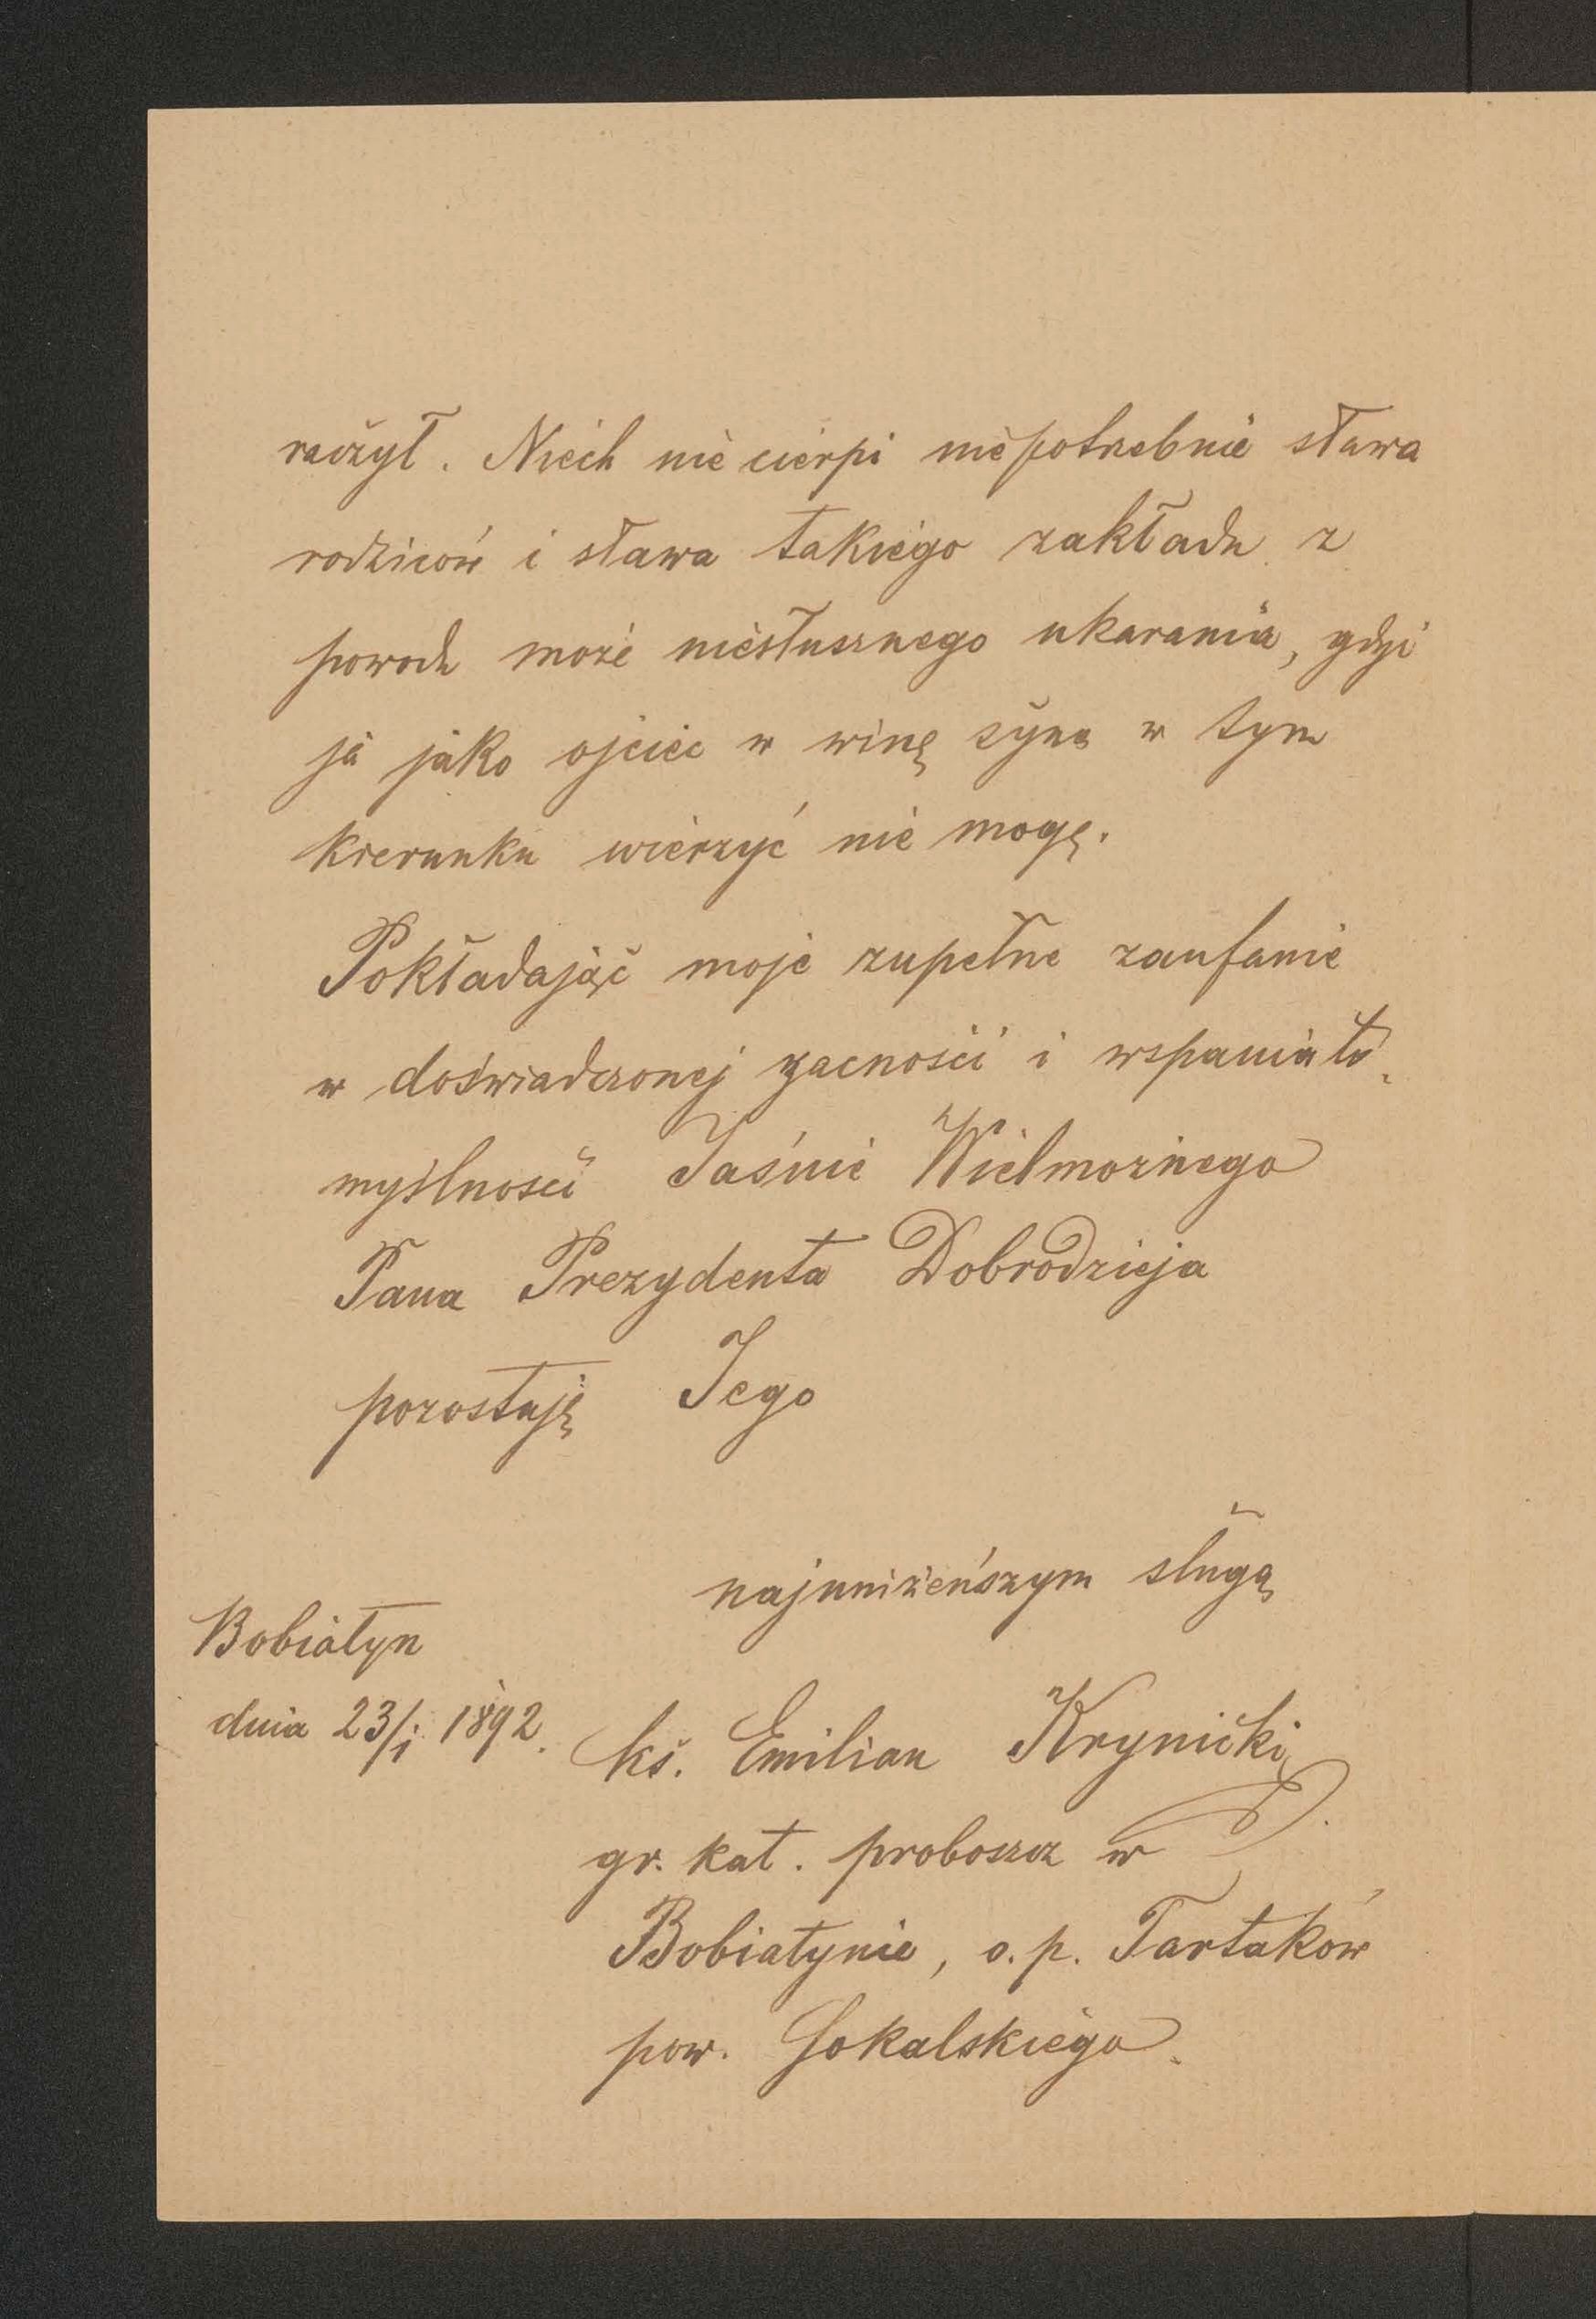 raczył. Niech nie cierpi niepotrzebnie sława
rodziców i sława takiego zakładu z
powodu może niesłusznego ukarania, gdyż
ja jako ojciec w winę syna w tym
kierunku wierzyć nie mogę.
Pokładając moje zupełne zaufanie
w doświadczonej zacności i wspaniało-
myślności Jaśnie Wielmożnego
Pana Prezydenta Dobrodzieja
pozostaję Jego
najuniżeńszym sługą
Bobiatyn
dnia 23/1 1892.
ks. Emilian Krynicki
gr. kat. proboszcz w
Bobiatynie, o.p. Tartaków
pow. Sokalskiego.